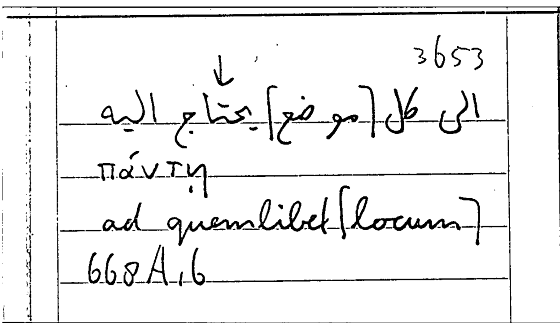 3653
↓
الى كل [موضع] يحتاج اليه
πάντη
ad quemlibet [locum]
668A,6